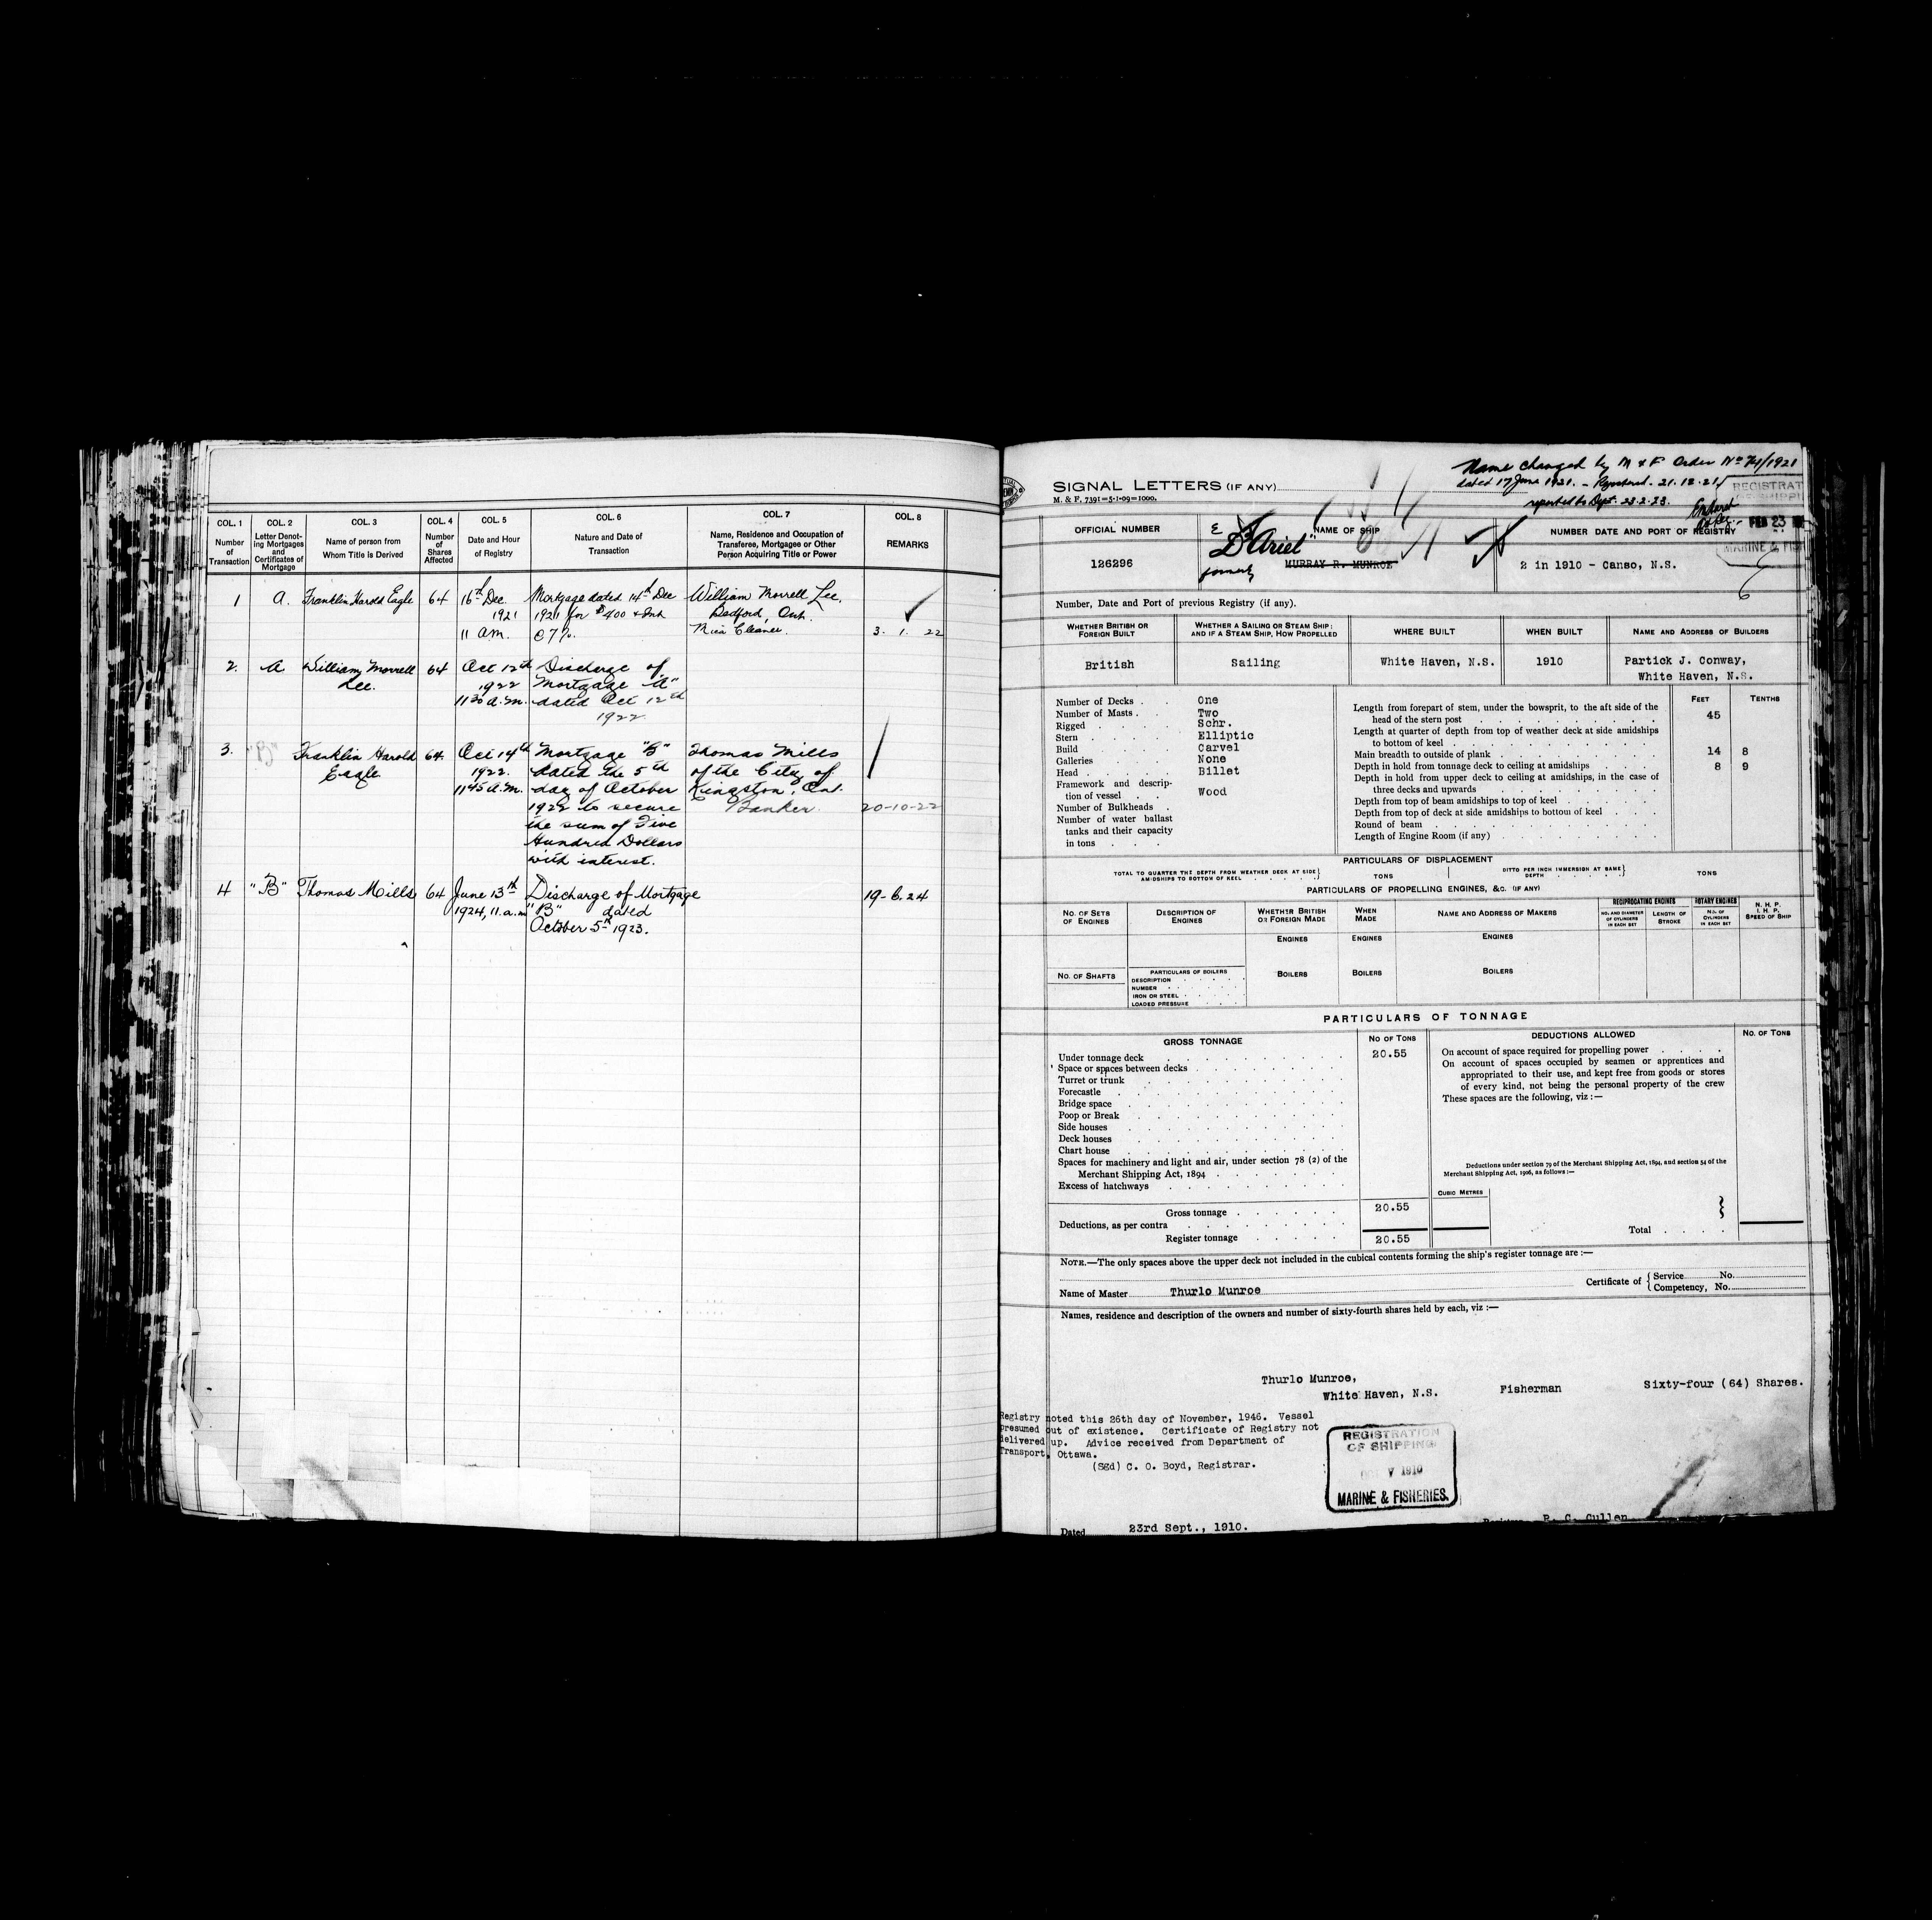 COL. 1
Number
of
Transaction
COL. 2
Letter Denot-
ing Mortgages
and
Certificates of
Mortgage
COL. 3
Name of person from
Whom Title is Derived
COL. 4
Number
of
Shares
Affected
COL. 5
Date and Hour
of Registry
COL. 6
Nature and Date of
Transaction
COL. 7
Name, Residence and Occupation of
Transferee, Mortgagee or Other
Person Acquiring Title or Power
COL. 8
REMARKS
1 A. Franklin Harold Eagle 64 16th Dec. Mortgage dated 14th Dec William Morrell Lee,
1921 1921 for $400 & Int Bedford, Ont.
11 am. @ 7%. Mica Cleaner. 3. 1. 22
2. A William Morrell 64 Oct 12th Discharge of
Lee. 1922 Mortgage "A"
1130 a.m. dated Oct 12th
1922
3. "B" Franklin Harold 64. Oct 14th Mortgage "B" Thomas Mills
Eagle 1922. dated the 5th of the City of
1145 a.m. day of October Kingston, Ont.
1922 to secure Banker. 20-10-22
the sum of Five
Hundred Dollars
with interest.
4 "B" Thomas Mills 64 June 13th Discharge of Mortgage 19-6.24
1924, 11.a.m "B" dated
October 5th 1923.
Name changed by M & F Order No 74/1921
dated 17 June 1921. - Registered. 21.12.21
reported to Dept. 23.2.23.
SIGNAL LETTERS (IF ANY)
M. & F. 7391=5-1-09=1000.
REGISTRAT
FEB 23
MARINE & FIS
OFFICIAL NUMBER
126296
NAME OF SHIP
"D'Ariel"
formerly MURRAY R. MUNROE
NUMBER DATE AND PORT OF REGISTRY
2 in 1910 - Canso, N.S.
Number, Date and Port of previous Registry (if any).
WHETHER BRITISH OR
FOREIGN BUILT
British
WHETHER A SAILING OR STEAM SHIP;
AND IF A STEAM SHIP, HOW PROPELLED
Sailing
WHERE BUILT
White Haven, N.S.
WHEN BUILT
1910
NAME AND ADDRESS OF BUILDERS
Partick J. Conway,
White Haven, N.S.
Number of Decks . . One
Number of Masts . . Two
Rigged . . . Schr.
Stern . . . Elliptic
Build . . . Carvel
Galleries . . . None
Head . . . Billet
Framework and descrip-
tion of vessel . . Wood
Number of Bulkheads .
Number of water ballast
tanks and their capacity
in tons . . .
FEET TENTHS
Length from forepart of stem, under the bowsprit, to the aft side of the
head of the stern post 45
Length at quarter of depth from top of weather deck at side amidships
to bottom of keel
Main breadth to outside of plank 14 8
Depth in hold from tonnage deck to ceiling at amidships 8 9
Depth in hold from upper deck to ceiling at amidships, in the case of
three decks and upwards
Depth from top of beam amidships to top of keel
Depth from top of deck at side amidships to bottom of keel
Round of beam
Length of Engine Room (if any)
PARTICULARS OF DISPLACEMENT
TOTAL TO QUARTER THE DEPTH FROM WEATHER DECK AT SIDE
AMIDSHIPS TO BOTTOM OF KEEL
TONS
DITTO PER INCH IMMERSION AT SAME
DEPTH
TONS
PARTICULARS OF PROPELLING ENGINES, &C. (IF ANY)
NO. OF SETS
OF ENGINES
DESCRIPTION OF
ENGINES
WHETHER BRITISH
OR FOREIGN MADE
WHEN
MADE
NAME AND ADDRESS OF MAKERS
RECIPROCATING ENGINES
NO. AND DIAMETER
OF CYLINDERS
IN EACH SET
LENGTH OF
STROKE
ROTARY ENGINES
NO. OF
CYLINDERS
IN EACH SET
N. H. P.
I. H. P.
SPEED OF SHIP
ENGINES ENGINES ENGINES
NO. OF SHAFTS
PARTICULARS OF BOILERS
DESCRIPTION
NUMBER
IRON OR STEEL
LOADED PRESSURE
BOILERS BOILERS BOILERS
PARTICULARS OF TONNAGE
GROSS TONNAGE
NO OF TONS
Under tonnage deck 20.55
Space or spaces between decks
Turret or trunk
Forecastle
Bridge space
Poop or Break
Side houses
Deck houses
Chart house
Spaces for machinery and light and air, under section 78 (2) of the
Merchant Shipping Act, 1894
Excess of hatchways
Gross tonnage 20.55
Deductions, as per contra
Register tonnage 20.55
DEDUCTIONS ALLOWED
NO. OF TONS
On account of space required for propelling power
On account of spaces occupied by seamen or apprentices and
appropriated to their use, and kept free from goods or stores
of every kind, not being the personal property of the crew
These spaces are the following, viz :—
Deductions under section 79 of the Merchant Shipping Act, 1894, and section 54 of the
Merchant Shipping Act, 1906, as follows :—
CUBIC METRES
Total
NOTE.—The only spaces above the upper deck not included in the cubical contents forming the ship's register tonnage are :—
Name of Master Thurlo Munroe
Certificate of { Service No.
Competency, No.
Names, residence and description of the owners and number of sixty-fourth shares held by each, viz :—
Thurlo Munroe,
White Haven, N.S. Fisherman Sixty-four (64) Shares.
Registry noted this 26th day of November, 1946. Vessel
presumed out of existence. Certificate of Registry not
delivered up. Advice received from Department of
Transport, Ottawa.
(Sgd) C. O. Boyd, Registrar.
REGISTRATION
OF SHIPPING
1910
MARINE & FISHERIES.
Dated 23rd Sept., 1910.
R. C. Cullen